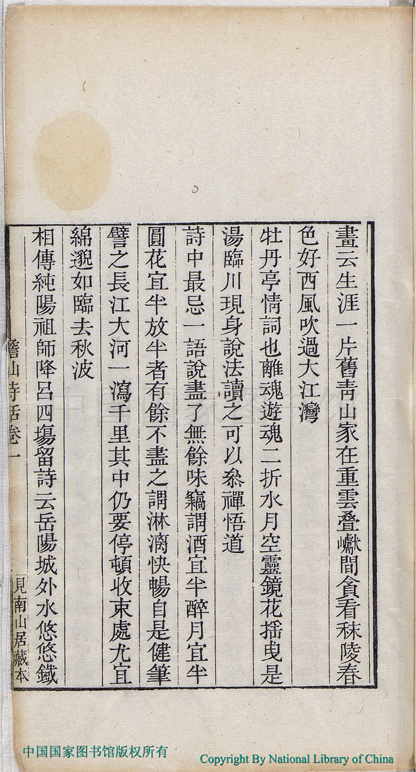 畫云生涯一片舊青山家在重雲叠巘間貪看秣陵春
色好西風吹過大江灣
牡丹亭情詞也離魂遊魂二折水月空靈鏡花搖曳是
湯臨川現身說法讀之可以叅禪悟道
詩中最忌一語說盡了無餘味竊謂酒宜半醉月宜半
圓花宜半放半者有餘不盡之謂淋漓快暢自是健筆
譬之長江大河一瀉千里其中仍要停頓收束處尤宜
綿邈如臨去秋波
相傳純陽祖師降呂四塲留詩云岳陽城外水悠悠鐵
山詩話卷一
見南山居藏本
中国国家图书馆版权所有
Copyright By National Library of China